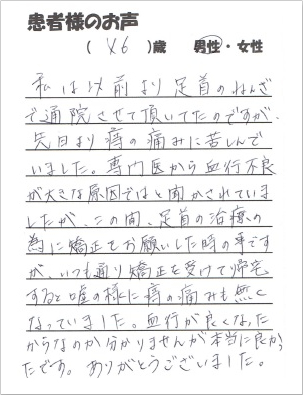 患者様のお声
( 46 )歳 男性・女性
私は以前より足首のねんざ
で通院させて頂いてたのですが、
先日より痔の痛みに苦しんで
いました。専門医から血行不良
が大きな原因ではと聞かされていま
したが、この間、足首の治療の
為に矯正をお願いした時の事です
が、いつも通り矯正を受けて帰宅
すると嘘の様に痔の痛みも無く
なっていました。血行が良くなった
からなのか分かりませんが本当に良かっ
たです。ありがとうございました。